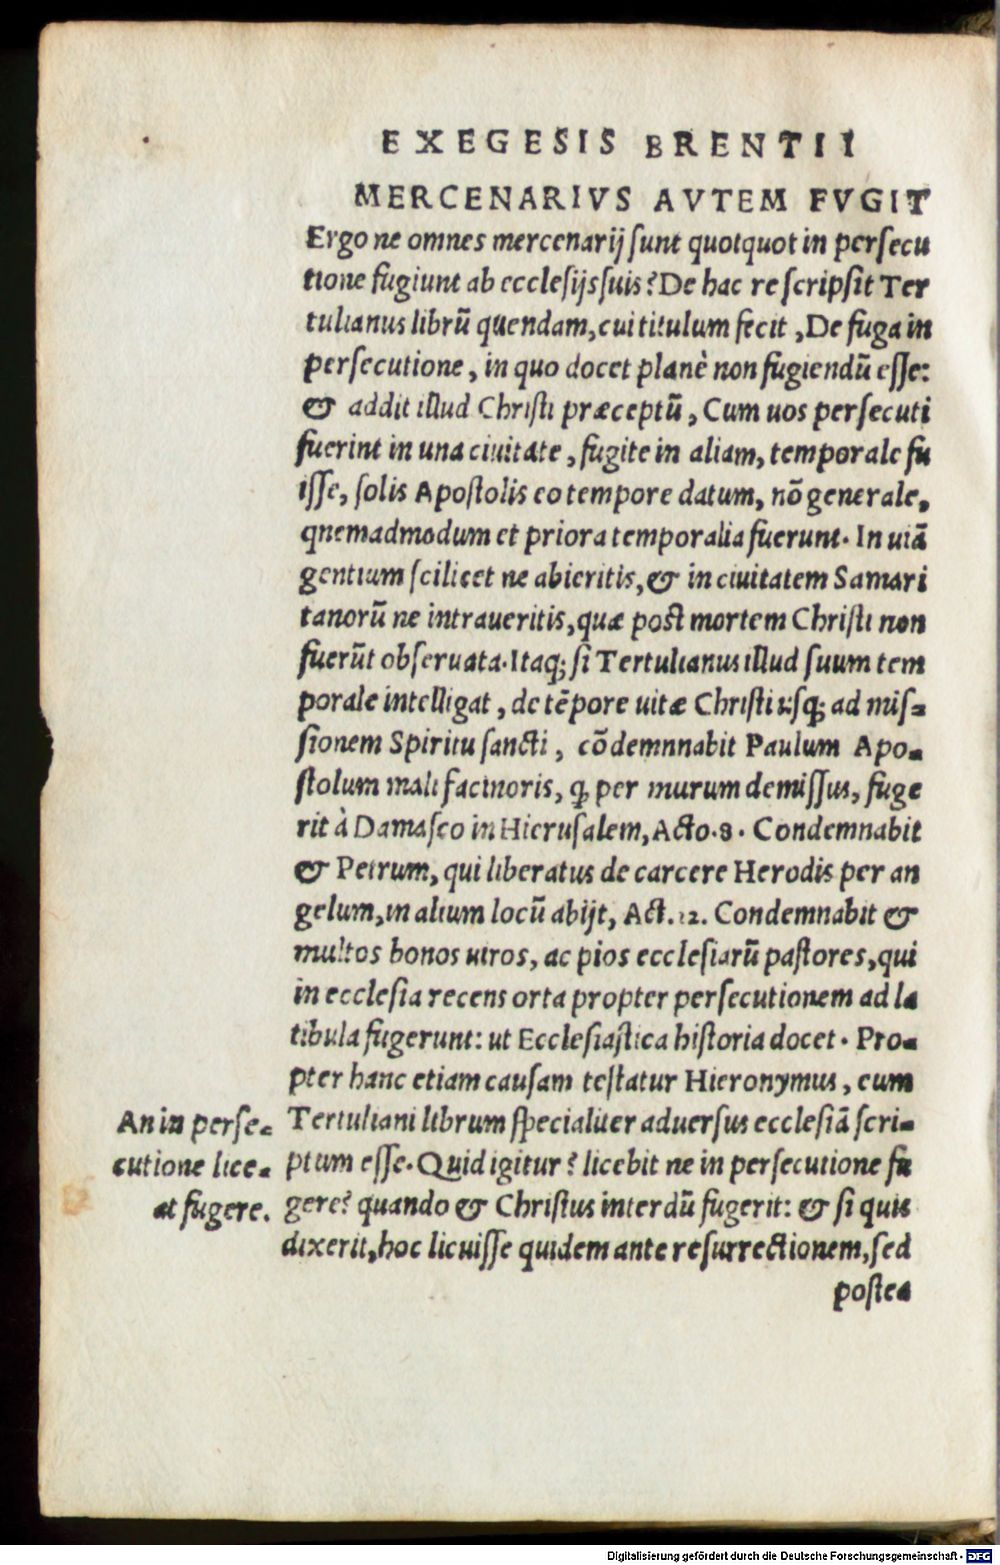 EXEGESIS BRENTII
MERCENARIVS AVTEM FVGIT
Ergo ne omnes mercenarij sunt quotquot in persecu
tione fugiunt ab ecclesijs suis? De hac re scripsit Ter
tulianus librũ quendam, cui titulum fecit, De fuga in
persecutione, in quo docet planè non fugiendũ esse:
& addit illud Christi præceptũ, Cum uos persecuti
fuerint in una ciuitate, fugite in aliam, temporale fu
isse, solis Apostolis eo tempore datum, nõ generale,
qnemadmodum et priora temporalia fuerunt. In uiã
gentium scilicet ne abieritis, & in ciuitatem Samari
tanorũ ne intraueritis, quæ post mortem Christi non
fuerũt obseruata. Itaq; si Tertulianus illud suum tem
porale intelligat, de tẽpore uitæ Christi usq; ad mis-
sionem Spiritu sancti, cõdemnnabit Paulum Apo-
stolum mali facinoris, q, per murum demissus, fuge
rit à Damasco in Hierusalem, Acto.8. Condemnabit
& Petrum, qui liberatus de carcere Herodis per an
gelum, in alium locũ abijt, Act. 12. Condemnabit &
multos bonos uiros, ac pios ecclesiarũ pastores, qui
in ecclesia recens orta propter persecutionem ad la
tibula fugerunt: ut Ecclesiastica historia docet. Pro-
pter hanc etiam causam testatur Hieronymus, eum
Tertuliani librum specialiter aduersus ecclesiã scri-
ptum esse. Quid igitur? licebit ne in persecutione fu
gere? quando & Christus interdũ fugerit: & si quis
dixerit, hoc licuisse quidem ante resurrectionem, sed
postea
An in perse-
cutione lice-
at fugere.
Digitalisierung gefördert durch die Deutsche Forschungsgemeinschaft - DFG